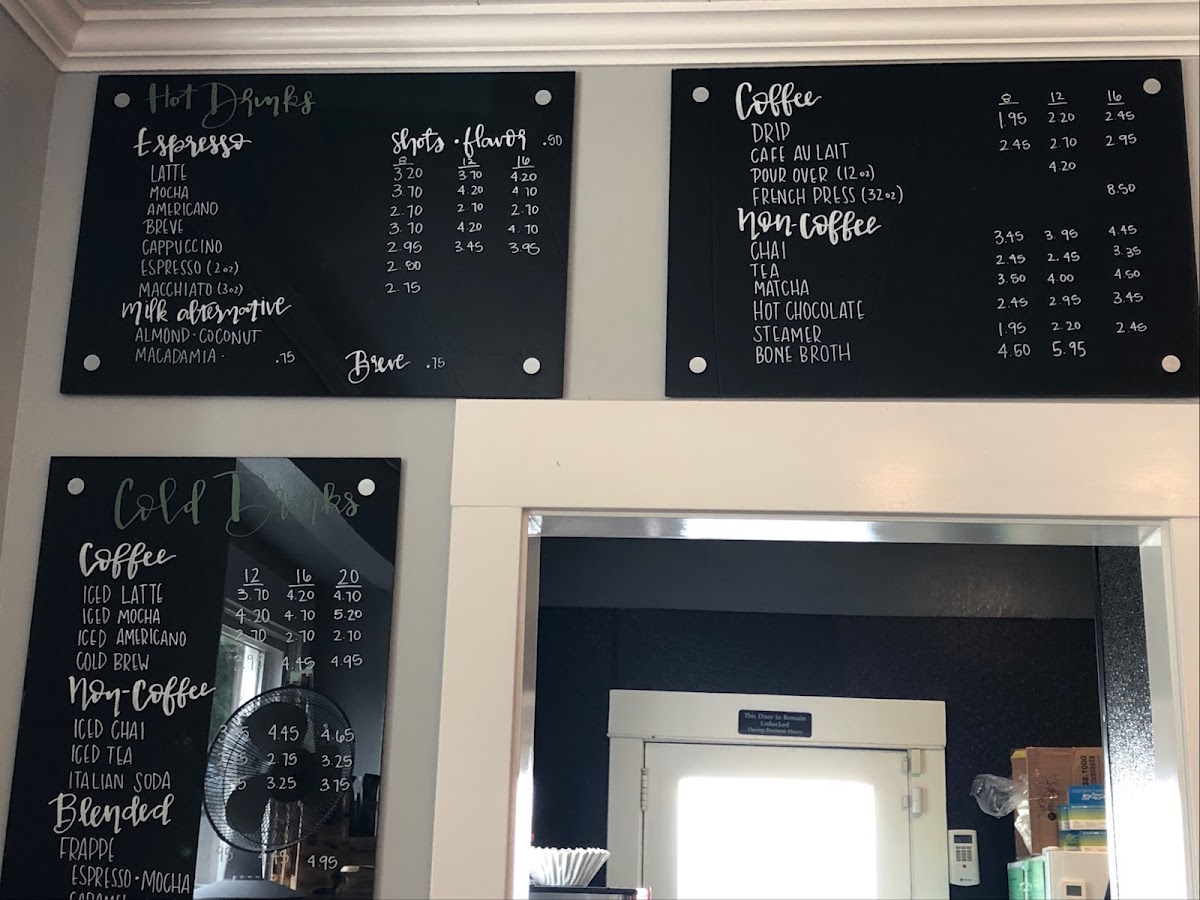 Hot Drinks
Espresso shots · flavor .50
8 12 16
LATTE 3.20 3.70 4.20
MOCHA 3.70 4.20 4.70
AMERICANO 2.70 2.70 2.70
BREVE 3.70 4.20 4.70
CAPPUCCINO 2.95 3.45 3.95
ESPRESSO (2oz) 2.50
MACCHIATO (3oz) 2.75
Milk alternative
ALMOND · COCONUT
MACADAMIA · .75 Breve .75
Coffee 8 12 16
DRIP 1.95 2.20 2.45
CAFE AU LAIT 2.45 2.70 2.95
POUR OVER (12oz) 4.20
FRENCH PRESS (32oz) 8.50
Non-Coffee
CHAI 3.45 3.95 4.45
TEA 2.45 2.45 3.35
MATCHA 3.50 4.00 4.50
HOT CHOCOLATE 2.45 2.95 3.45
STEAMER 1.95 2.20 2.45
BONE BROTH 4.50 5.95
Cold Drinks
Coffee
12 16 20
ICED LATTE 3.70 4.20 4.70
ICED MOCHA 4.20 4.70 5.20
ICED AMERICANO 2.70 2.70 2.70
COLD BREW 4.45 4.95
Non-Coffee
ICED CHAI 4.45 4.65
ICED TEA 2.75 3.25
ITALIAN SODA 3.25 3.75
Blended
FRAPPE 4.95
ESPRESSO · MOCHA
CARAMEL
This Door to Remain
Unlocked
During Business Hours